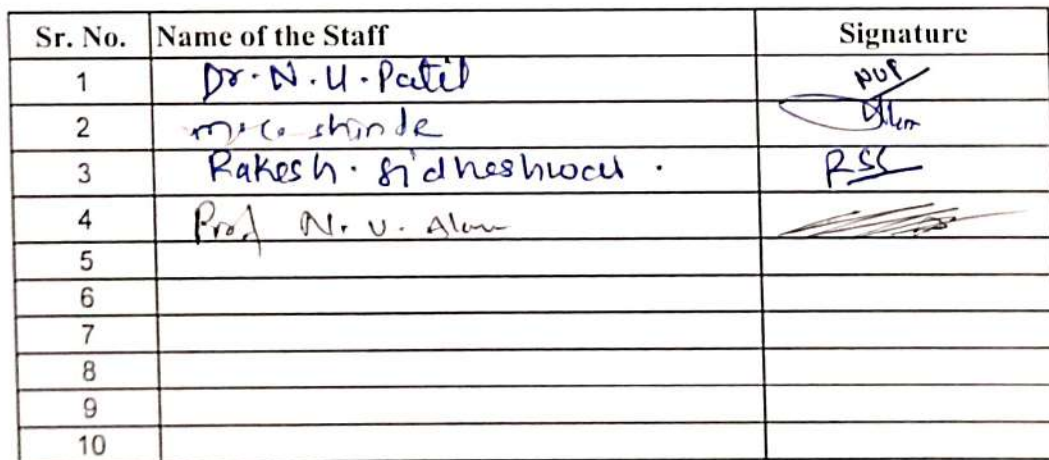 Sr. No. Name of the Staff Signature
1 Dr. N. U. Patil NUP
2 shinde
3 Rakesh. Sidheshwar. RSS
4 Prof N. U.
5
6
7
8
9
10